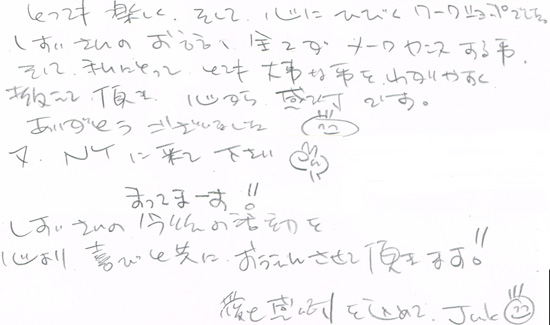 とっても楽しく、そして、心にひびくワークショップでした。
しおいさんのお話し、全てがメークセンスする事、
そして、私にとってとても大事な事を、わかりやすく
教えて頂き、心から感謝です。
ありがとうございました
又、NYに来て下さい
まってまーす!!
しおいさんの今後の活動を
心より喜びと共におうえんさせて頂きます!!
感謝を込めて、